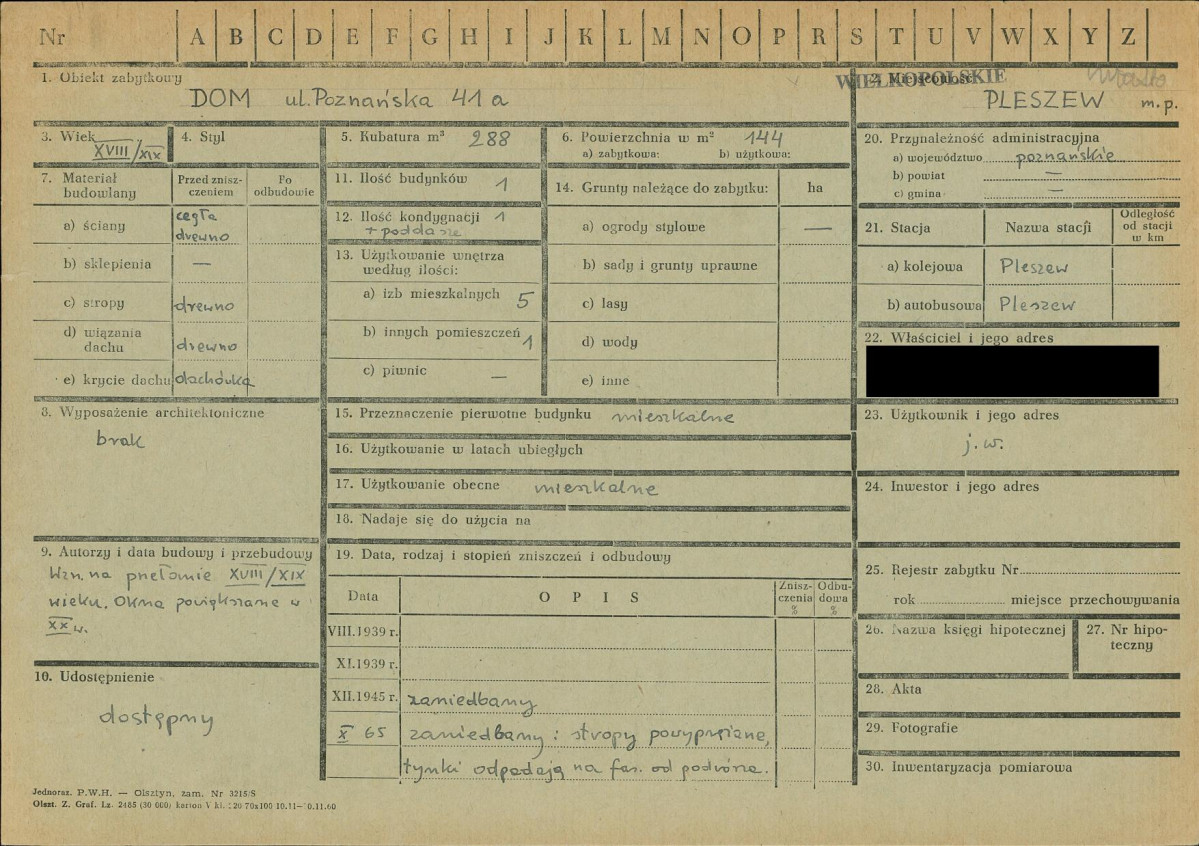 Nr A B C D E F G H I J K L M N O P R S T U V W X Y Z
1. Obiekt zabytkowy
DOM ul. Poznańska 41 a
WIELKOPOLSKIE
2. Miejscowość
miasto
PLESZEW m. p.
3. Wiek
XVIII/XIX
4. Styl
5. Kubatura m³ 288
6. Powierzchnia w m² 144
a) zabytkowa: b) użytkowa:
7. Materiał budowlany
Przed znisz-
czeniem
Po
odbudowie
a) ściany cegła
drewno
b) sklepienia —
c) stropy drewno
d) wiązania
dachu drewno
e) krycie dachu dachówka
8. Wyposażenie architektoniczne
brak
9. Autorzy i data budowy i przebudowy
Wzn. na przełomie XVIII/XIX
wieku. Okna powiększane w
XX w.
10. Udostępnienie
dostępny
11. Ilość budynków 1
12. Ilość kondygnacji 1
+ poddasze
13. Użytkowanie wnętrza
według ilości:
a) izb mieszkalnych 5
b) innych pomieszczeń 1
c) piwnic —
14. Grunty należące do zabytku: ha
a) ogrody stylowe —
b) sady i grunty uprawne
c) lasy
d) wody
e) inne
15. Przeznaczenie pierwotne budynku mieszkalne
16. Użytkowanie w latach ubiegłych
17. Użytkowanie obecne mieszkalne
18. Nadaje się do użycia na
19. Data, rodzaj i stopień zniszczeń i odbudowy
Data OPIS Znisz-
czenia
% Odbu-
dowa
%
VIII. 1939 r.
XI. 1939 r.
XII. 1945 r. zaniedbany
X 65 zaniedbany: stropy powyprężane,
tynki odpadają na fas. od podwórza.
20. Przynależność administracyjna
a) województwo poznańskie
b) powiat —
c) gmina —
21. Stacja Nazwa stacji Odległość
od stacji
w km
a) kolejowa Pleszew
b) autobusowa Pleszew
22. Właściciel i jego adres
23. Użytkownik i jego adres
j. w.
24. Inwestor i jego adres
25. Rejestr zabytku Nr
rok miejsce przechowywania
26. Nazwa księgi hipotecznej
27. Nr hipo-
teczny
28. Akta
29. Fotografie
30. Inwentaryzacja pomiarowa
Jednoraz. P.W.H. — Olsztyn, zam. Nr 3215/S
Olszt. Z. Graf. Lz. 2485 (30 000) karton V kl. 220 70x100 10.11